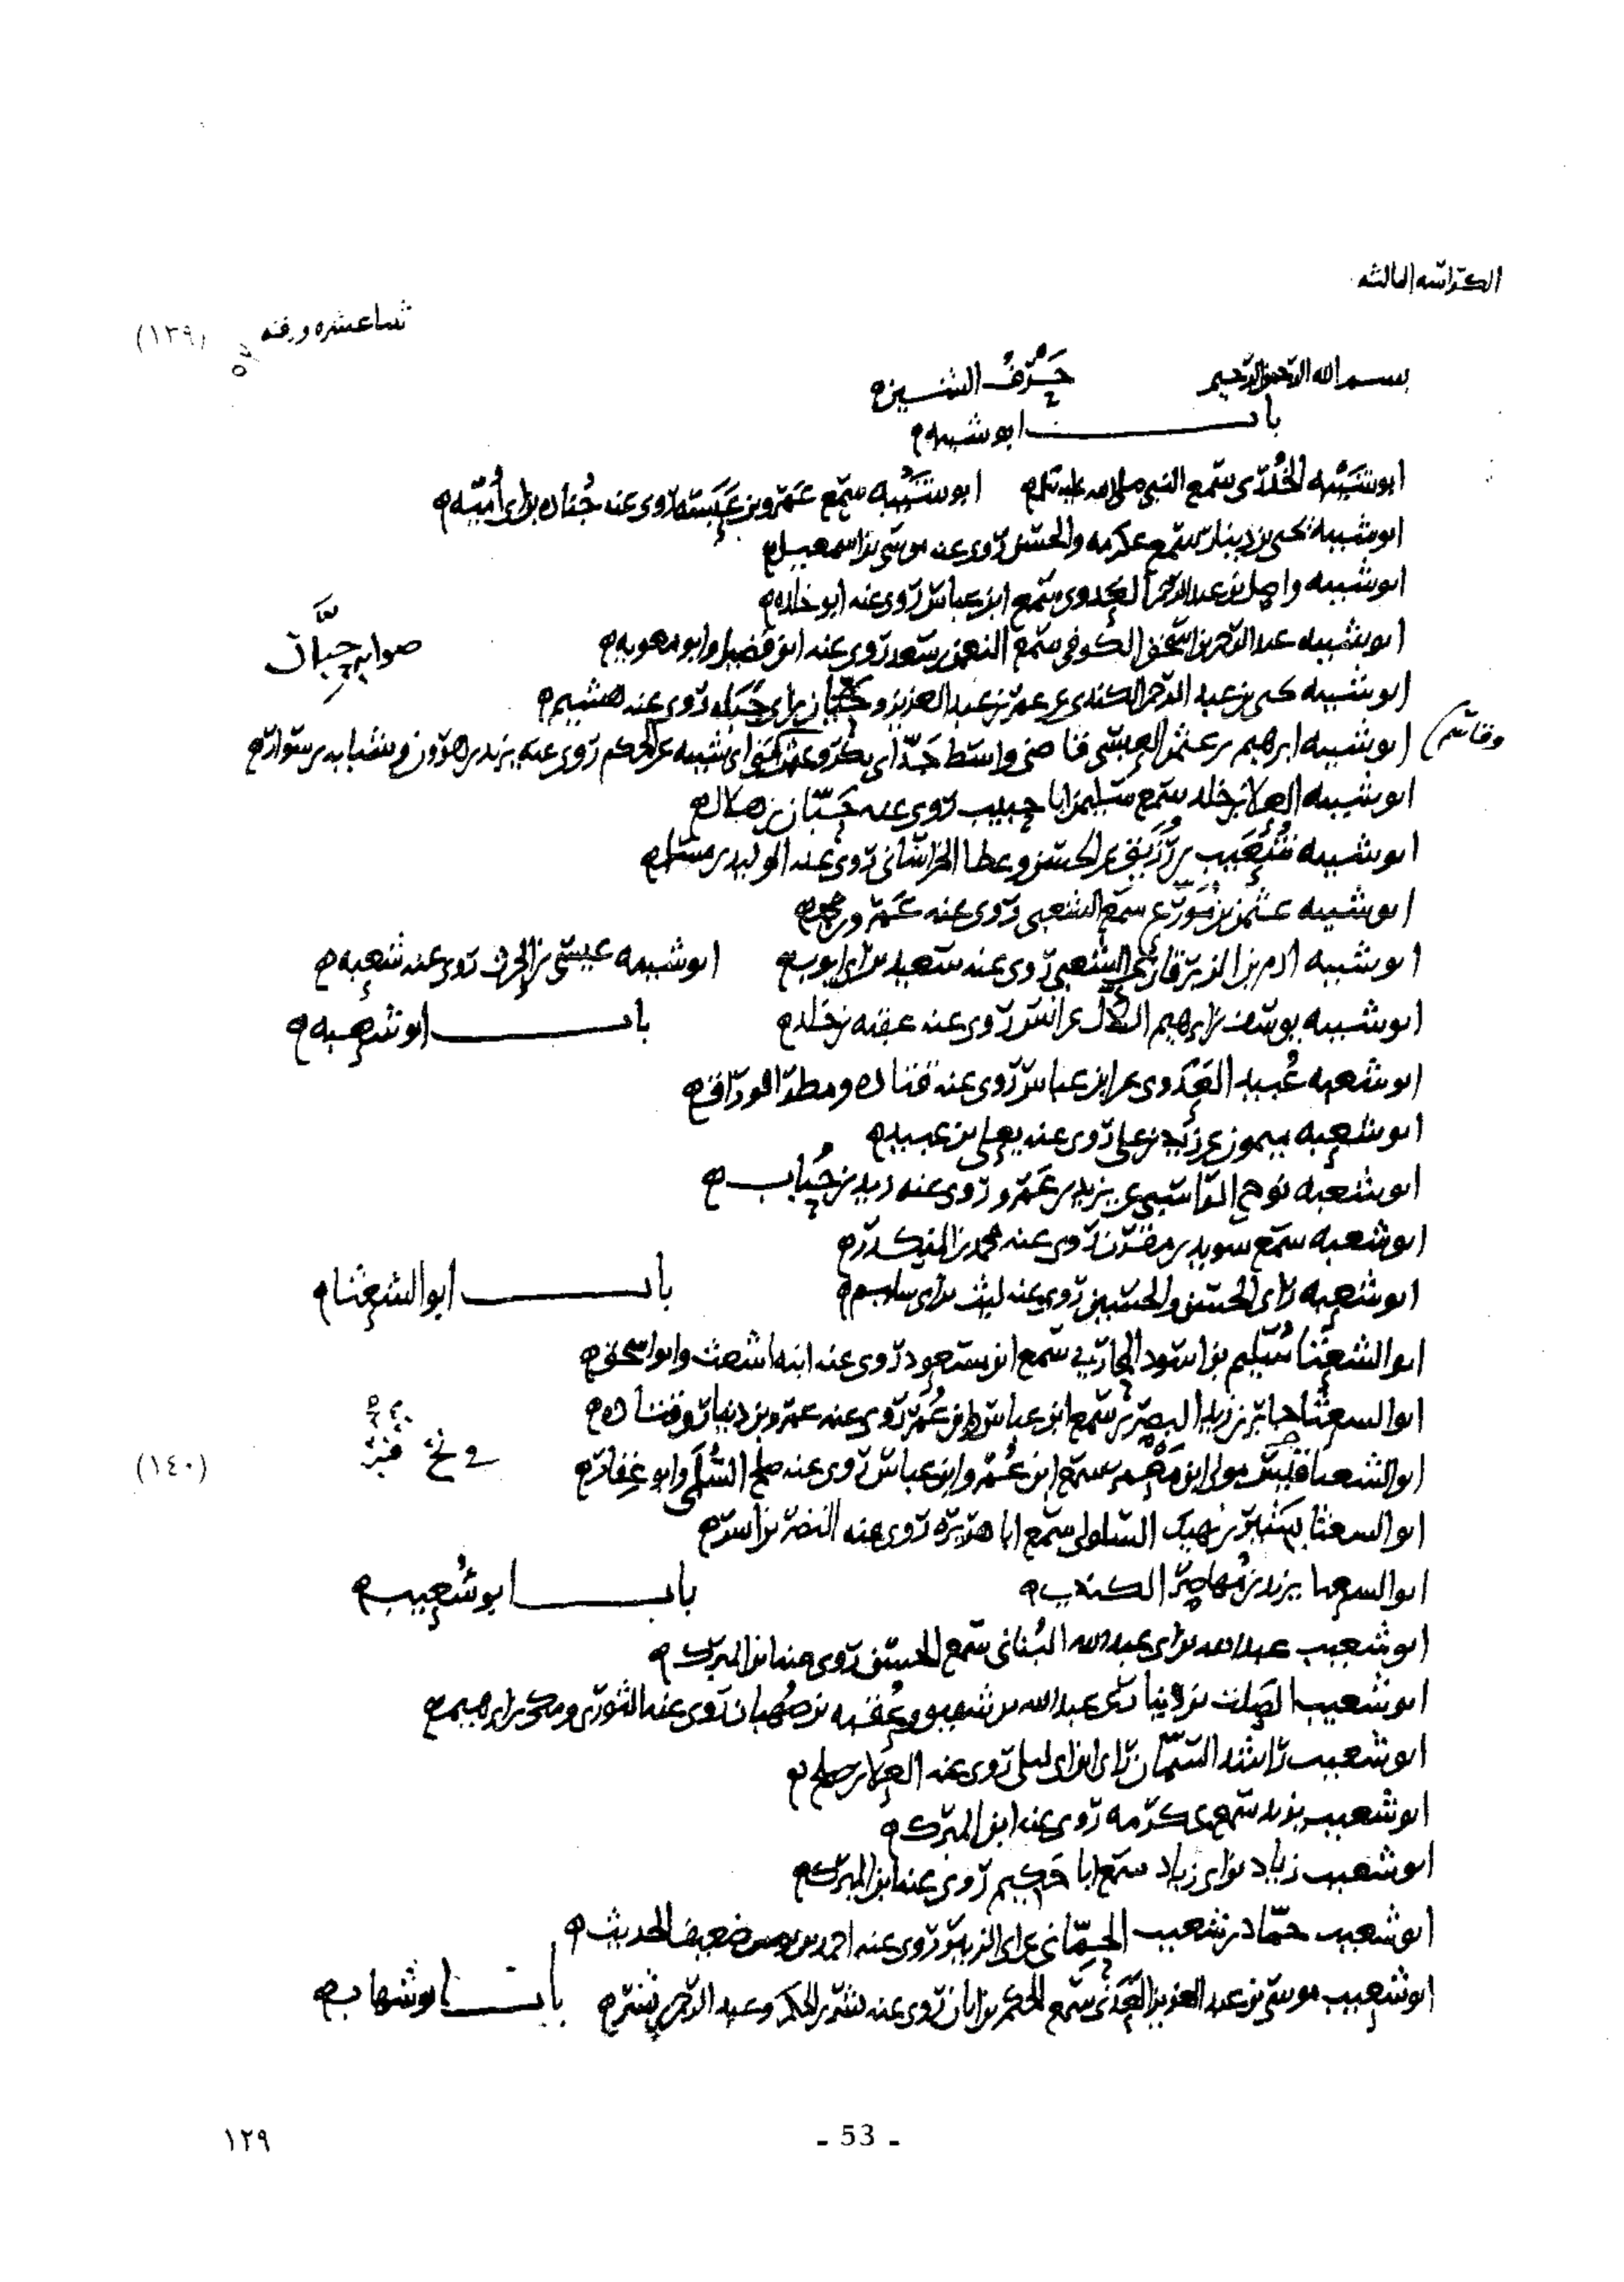 الكراسه الثالثه
ثنتا عشره ورقه
(١٣٩)
بسم الله الرحمن الرحيم حرف الشين
باب ابو شيبه
ابو شيبه الخدري سمع النبي صلى الله عليه وسلم ابو شيبه سمع عمرو بن عبسه روى عنه جناده بن ابي اميه
ابو شيبه يحيى بن دينار سمع عكرمه والحسن روى عنه موسى بن اسمعيل
ابو شيبه واصل بن عبد الرحمن العدوي سمع ابن عباس روى عنه ابو خلده
ابو شيبه عبد الرحمن بن اسحق الكوفي سمع النعمن بن سعد روى عنه ابن فضيل وابو معويه
صوابه حيان
ابو شيبه يحيى بن عبد الرحمن الكندي عن عمر بن عبد العزيز وحبان بن ابي جبله روى عنه هشيم
ابو شيبه ابرهيم بن عثمن العبسي قاضي واسط جد ابي بكر وعثمن ابني ابي شيبه عن الحكم روى عنه يزيد بن هرون وشبابه بن سوار
ابو شيبه العلا بن خلد سمع مسلم ابا حبيب روى عنه حبان بن هلال
ابو شيبه شعيب بن رزيق عن الحسن وعطا الخراساني روى عنه الوليد بن مسلم
ابو شيبه عثمن بن مورع سمع الشعبي روى عنه عمرو بن
ابو شيبه ادم بن الزبرقان عن الشعبي روى عنه سعيد بن ابي ايوب ابو شيبه عيسى بن الحرث روى عنه شعبه
ابو شيبه يوسف بن ابرهيم اللال عن انس روى عنه عقبه بن خلد باب ابو شعبه
ابو شعبه عبيد العدوي عن ابن عباس روى عنه قتاده ومطر الوراق
ابو شعبه ميمون عن زيد بن علي روى عنه يعلى بن عبيد
ابو شعبه نوح الراسبي عن يزيد بن عمرو روى عنه زيد بن حباب
ابو شعبه سمع سويد بن مقرن روى عنه محمد بن المنكدر
ابو شعبه راى الحسن والحسين روى عنه ليث بن ابي سليم باب ابو الشعثا
ابو الشعثا سليم بن اسود المحاربي سمع ابن مسعود روى عنه ابنه اشعث وابو اسحق
ابو الشعثا جابر بن زيد البصري سمع ابن عباس وابن عمر روى عنه عمرو بن دينار وقتاده
ابو الشعثا مولى ابن معمر سمع ابن عمر وابن عباس روى عنه صلح السلمي وابو غفار
في نخ قنبر
(١٤٠)
ابو الشعثا بن نهيك السلولي سمع ابا هريره روى عنه النضر بن
ابو الشعثا يزيد بن مهاصر الكندي باب ابو شعيب
ابو شعيب عبد الله بن ابي عبد الله البناني سمع الحسن روى عنه ابن المبرك
ابو شعيب الصلت بن دينار عن عبد الله بن شقيق وعقبه بن صهبان روى عنه الثوري ومكي بن ابرهيم
ابو شعيب راشد السمان راى ابن ابي ليلى روى عنه العلا بن صلح
ابو شعيب يزيد سمع عكرمه روى عنه ابن المبرك
ابو شعيب زياد بن ابي زياد سمع ابا حكيم روى عنه ابن المبرك
ابو شعيب حماد بن شعيب الحماني عن ابي الزبير روى عنه احمد بن يونس ضعيف الحديث
ابو شعيب موسى بن عبد العزيز العدني سمع الحكم بن ابان روى عنه بشر بن الحكم وعبد الرحمن بن بشر باب ابو شهاب
- 53 -
١٢٩